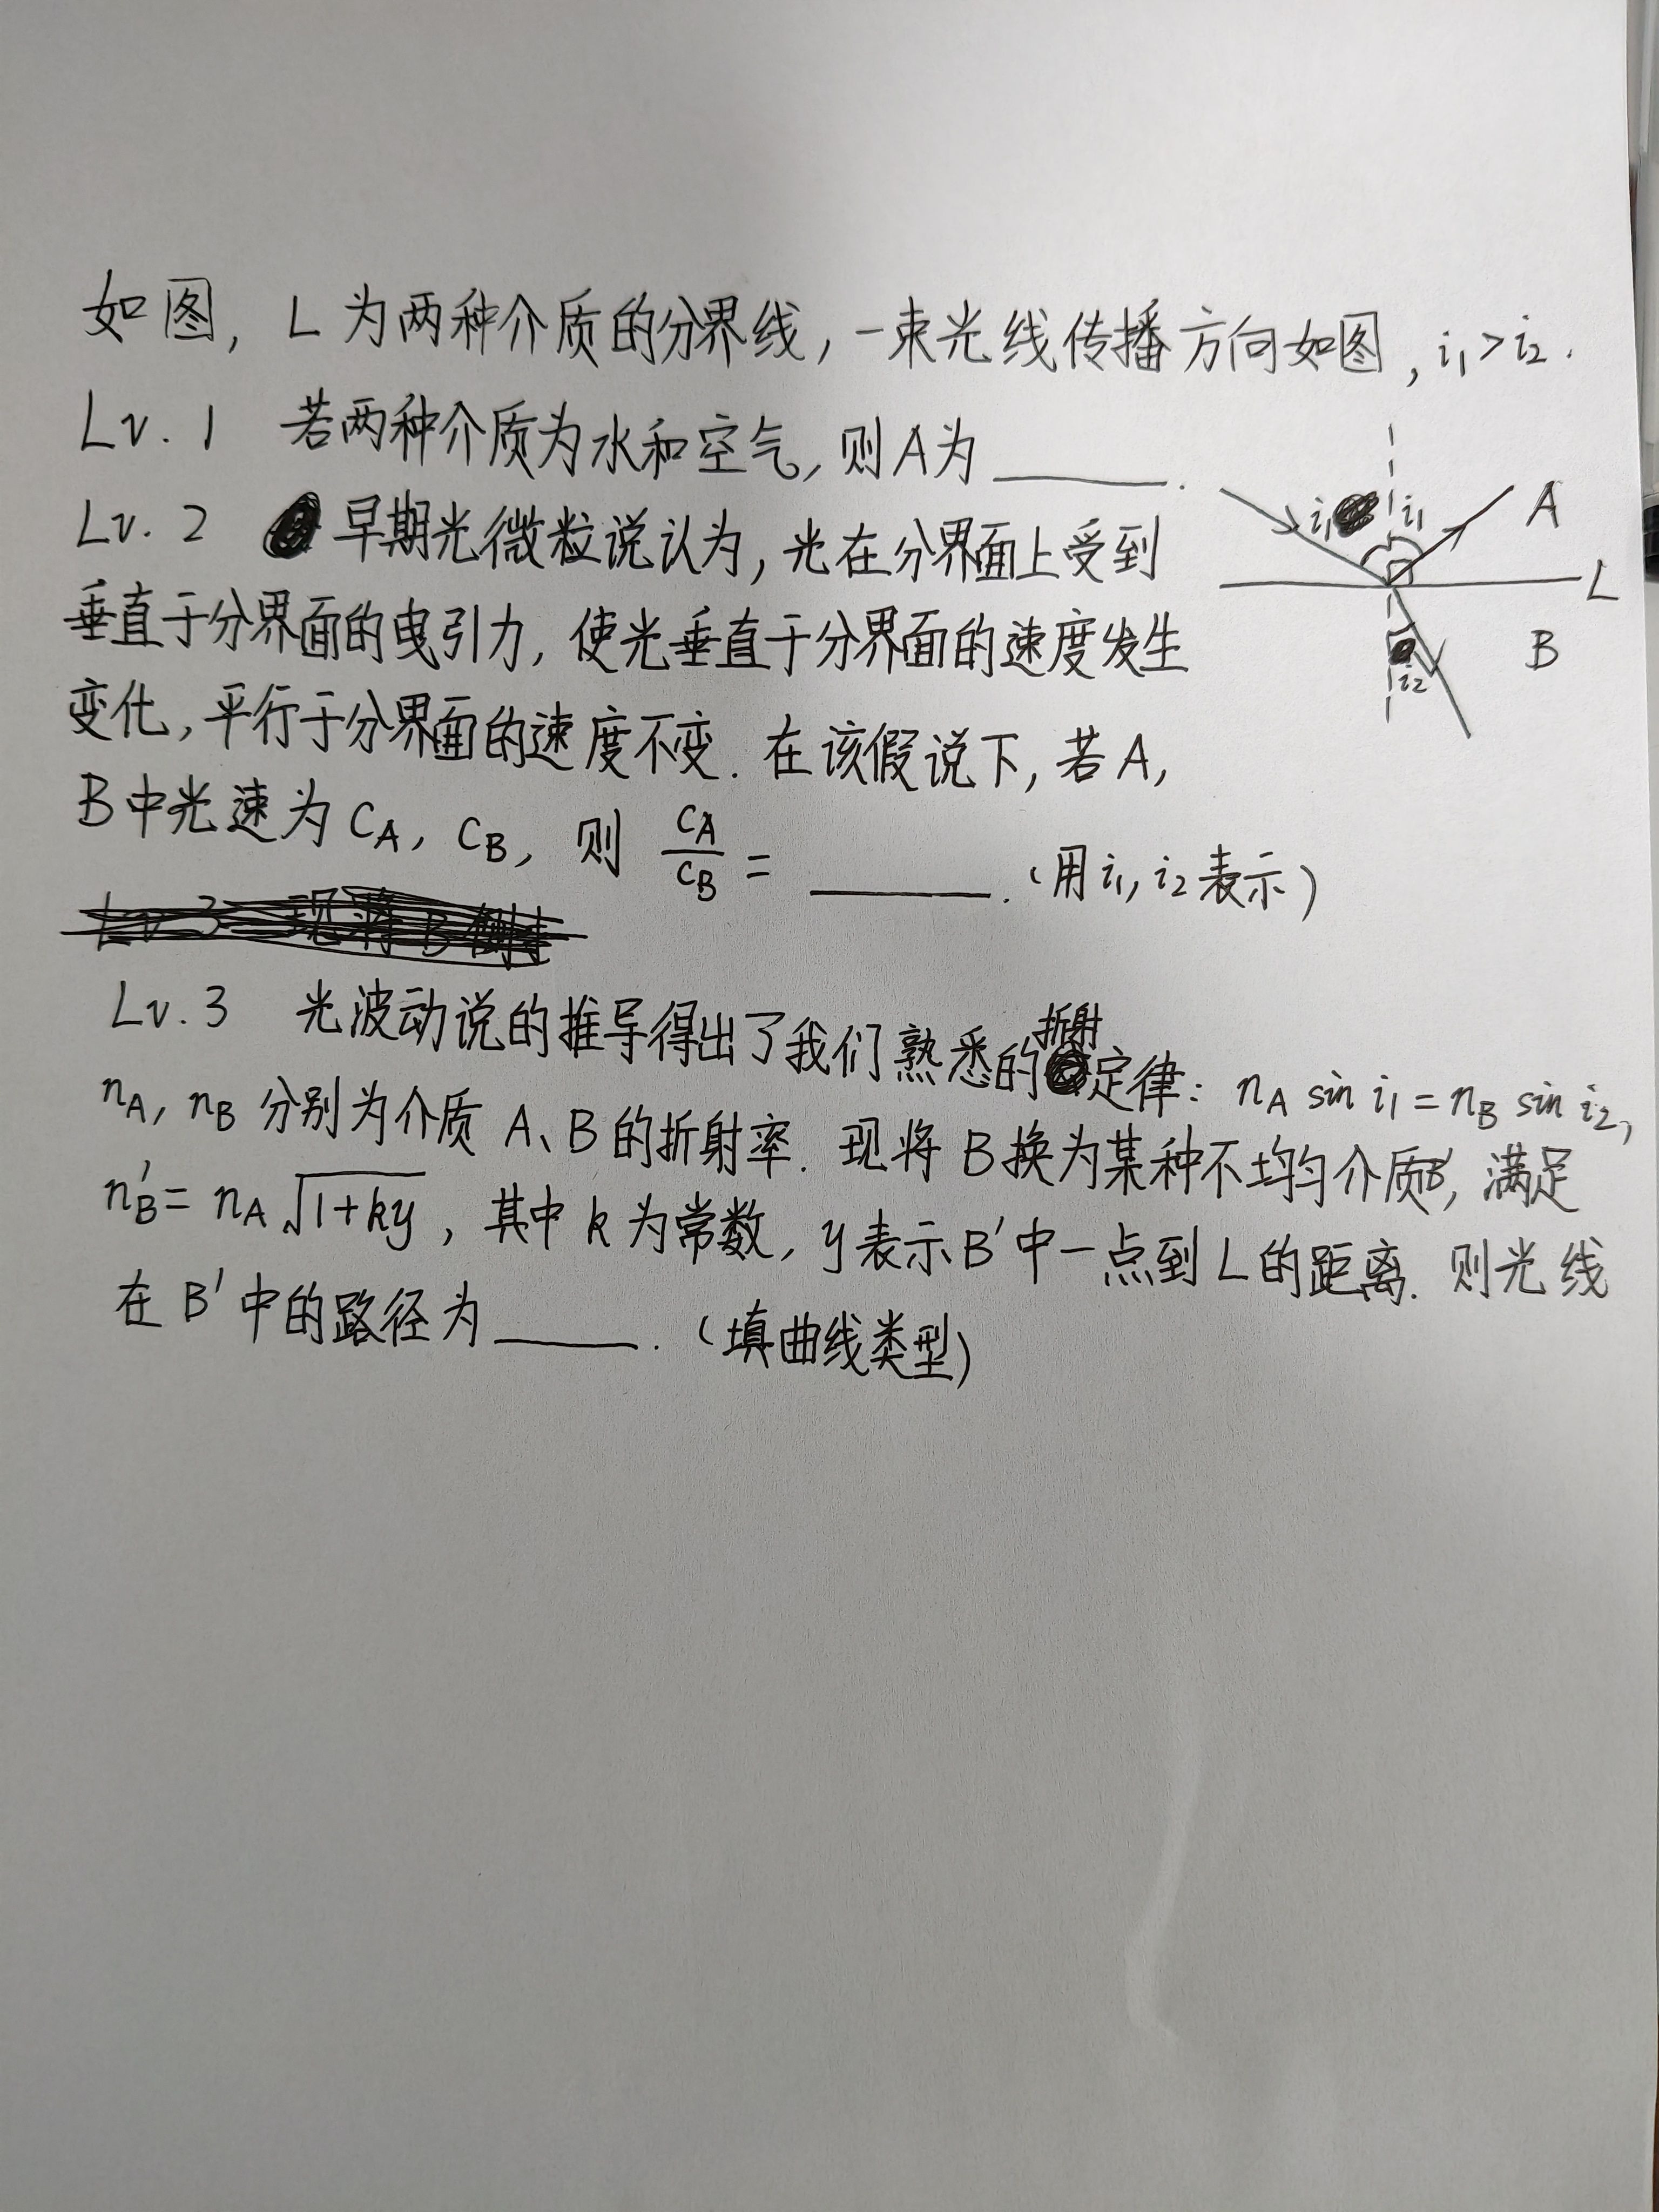 如图, L 为两种介质的分界线, 一束光线传播方向如图, i₁>i₂.
Lv. 1 若两种介质为水和空气, 则A为______.
Lv. 2 早期光微粒说认为, 光在分界面上受到
垂直于分界面的曳引力, 使光垂直于分界面的速度发生
变化, 平行于分界面的速度不变. 在该假说下, 若A,
B中光速为 C_A, C_B, 则 C_A/C_B = ______. (用 i₁, i₂ 表示)
Lv 3 现将B侧
Lv. 3 光波动说的推导得出了我们熟悉的折射定律: n_A sin i₁ = n_B sin i₂,
n_A, n_B 分别为介质 A、B 的折射率. 现将 B 换为某种不均匀介质B', 满足
n_B' = n_A √(1+ky), 其中 k 为常数, y 表示B'中一点到 L 的距离. 则光线
在 B' 中的路径为______. (填曲线类型)
i₁ i₁ A
L
B
i₂